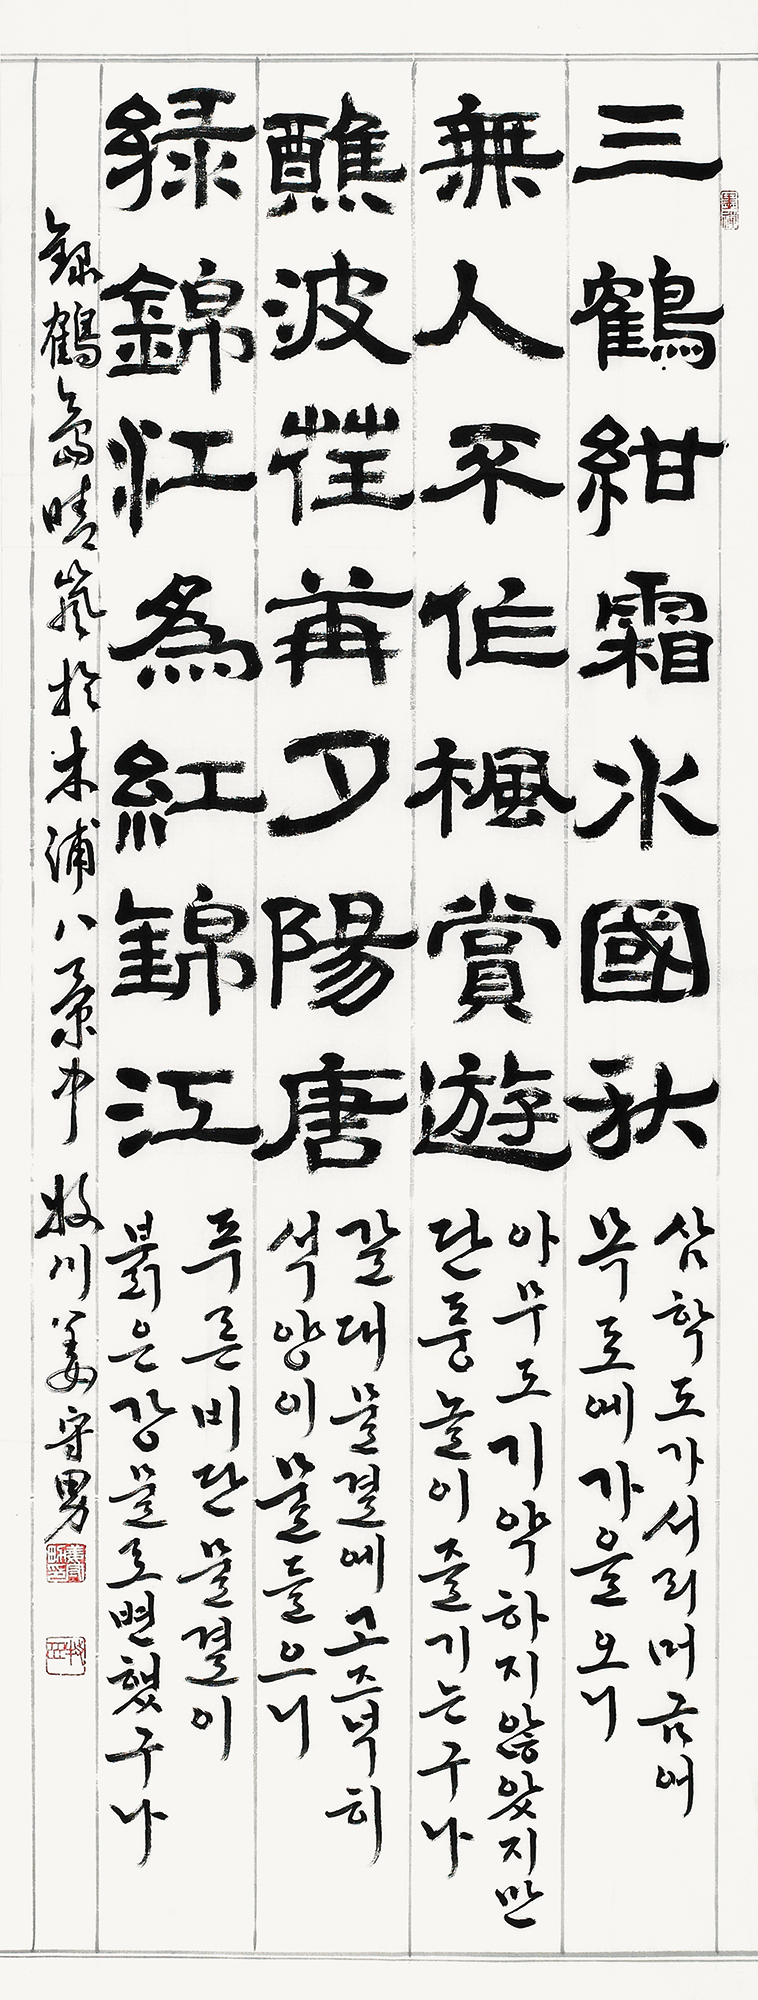 三鶴紺霜水國秋
삼학도가서리머금어
목포에가을오니
無人不作楓賞遊
아무도기약하지않았지만
단풍놀이즐기는구나
醮波荏苒夕陽唐
갈대물결에고즈넉히
석양이물들으니
綠錦江為紅錦江
푸른비단물결이
붉은강물로변했구나
錄鶴島晴嵐於木浦八景中 牧川姜守男